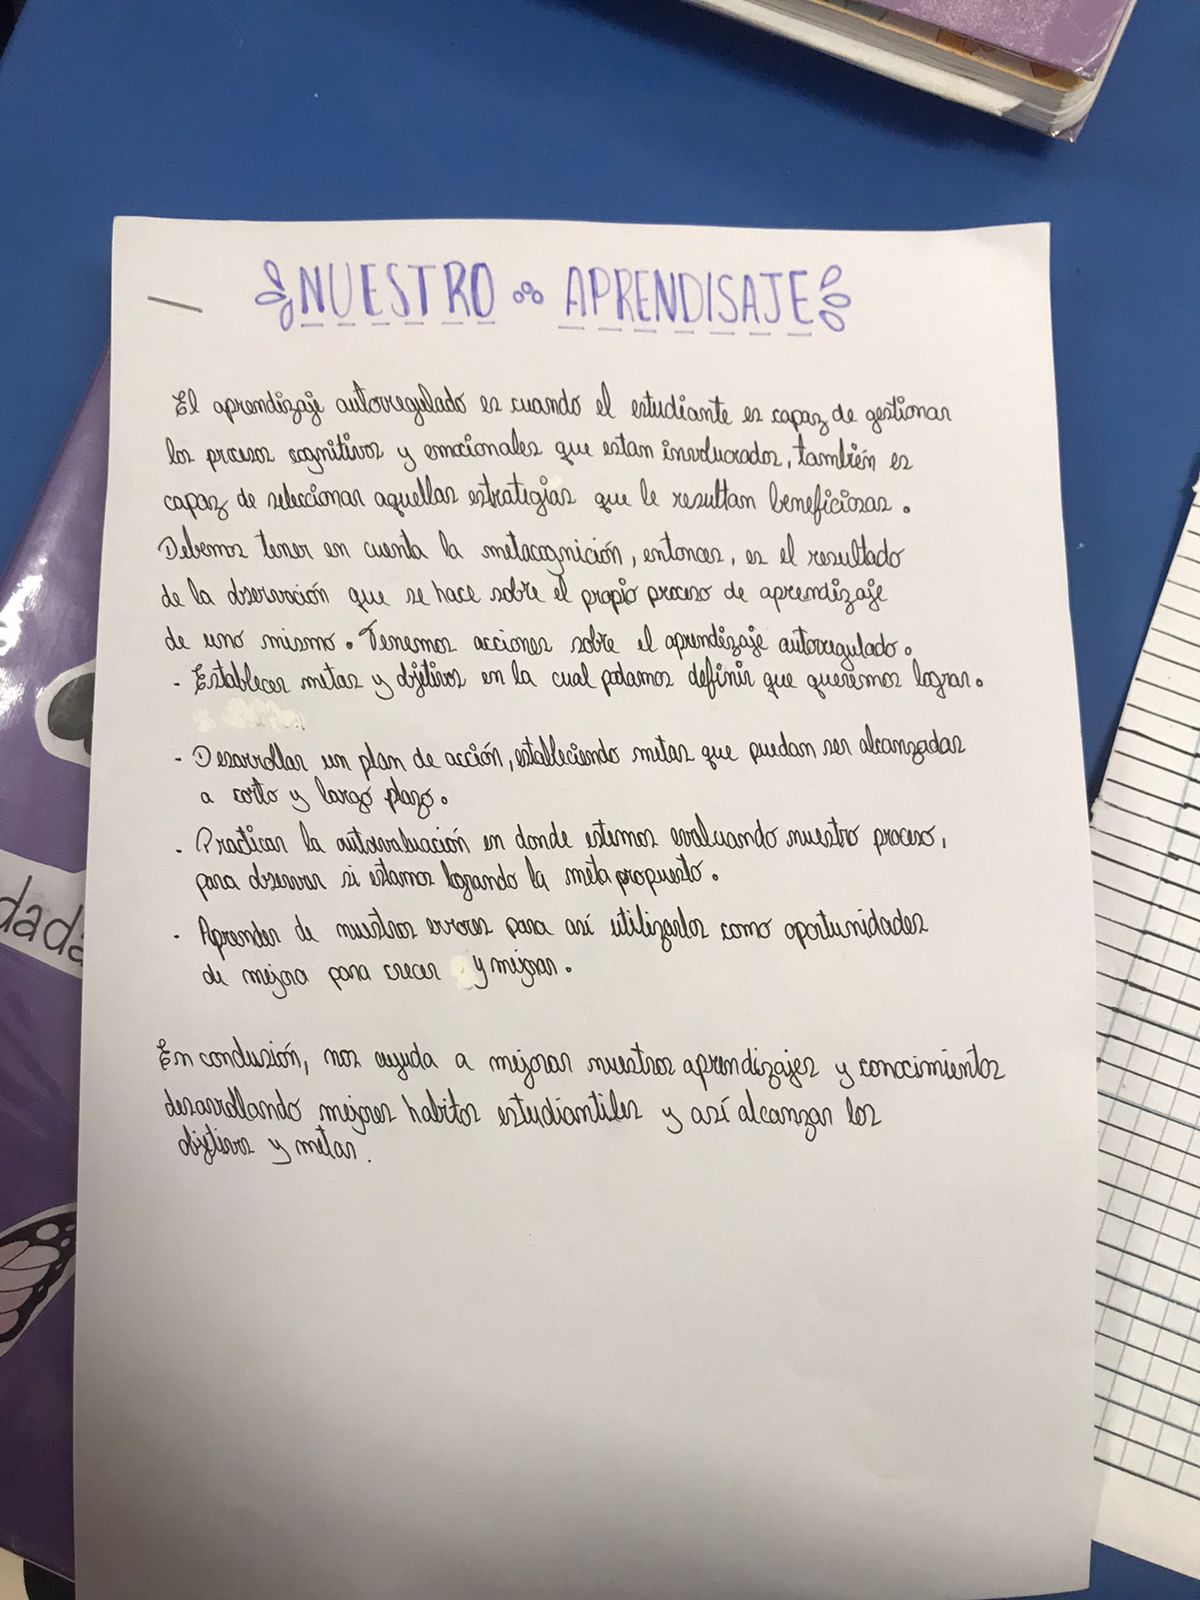 NUESTRO APRENDISAJE
El aprendizaje autorregulado es cuando el estudiante es capaz de gestionar
los procesos cognitivos y emocionales que estan involucrados, también es
capaz de seleccionar aquellas estrategias que le resultan beneficiosas.
Debemos tener en cuenta la metacognición, entonces, es el resultado
de la observación que se hace sobre el propio proceso de aprendizaje
de uno mismo. Tenemos acciones sobre el aprendizaje autorregulado.
- Establecer metas y objetivos en la cual podamos definir que queremos lograr.
- Desarrollar un plan de acción, estableciendo metas que puedan ser alcanzadas
a corto y largo plazo.
- Practicar la autoevaluación en donde estemos evaluando nuestro proceso,
para observar si estamos logrando la meta propuesto.
- Aprender de nuestros errores para así utilizarlos como oportunidades
de mejora para crecer y mejorar.
En conclusión, nos ayuda a mejorar nuestros aprendizajes y conocimientos
desarrollando mejores habitos estudiantiles y así alcanzar los
objetivos y metas.
dada